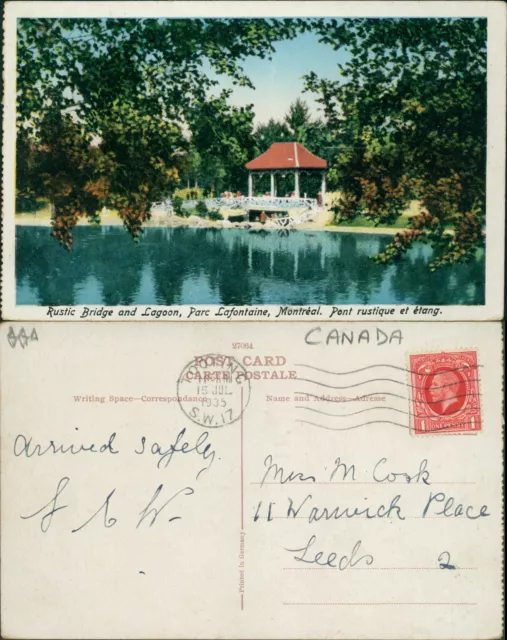 Rustic Bridge and Lagoon, Parc Lafontaine, Montréal. Pont rustique et étang.
CANADA
27064
POST CARD
CARTE POSTALE
Writing Space—Correspondance
Name and Address—Adresse
TOOTING
15 JUL
1935
S.W.17
1
1
Arrived safely.
Miss M. Cook
11 Warwick Place
Leeds 2
Printed in Germany